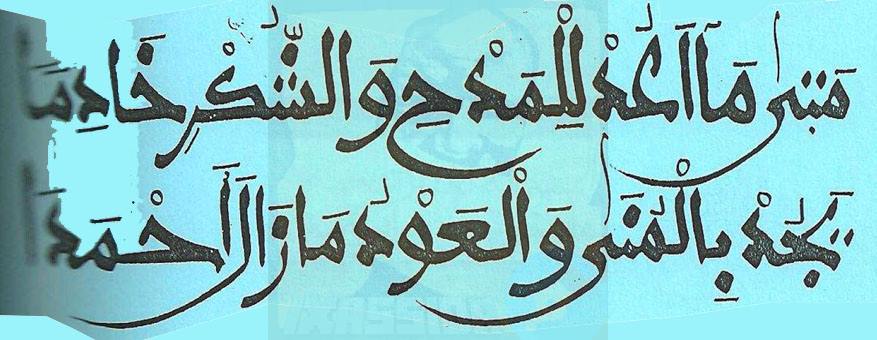 مَتَى مَا أَعُدْ لِلْمَدْحِ وَالشُّكْرِ خَادِمَا
يَجُدْ بِالْمُنَى وَالْعَوْدُ مَا زَالَ أَحْمَدَا